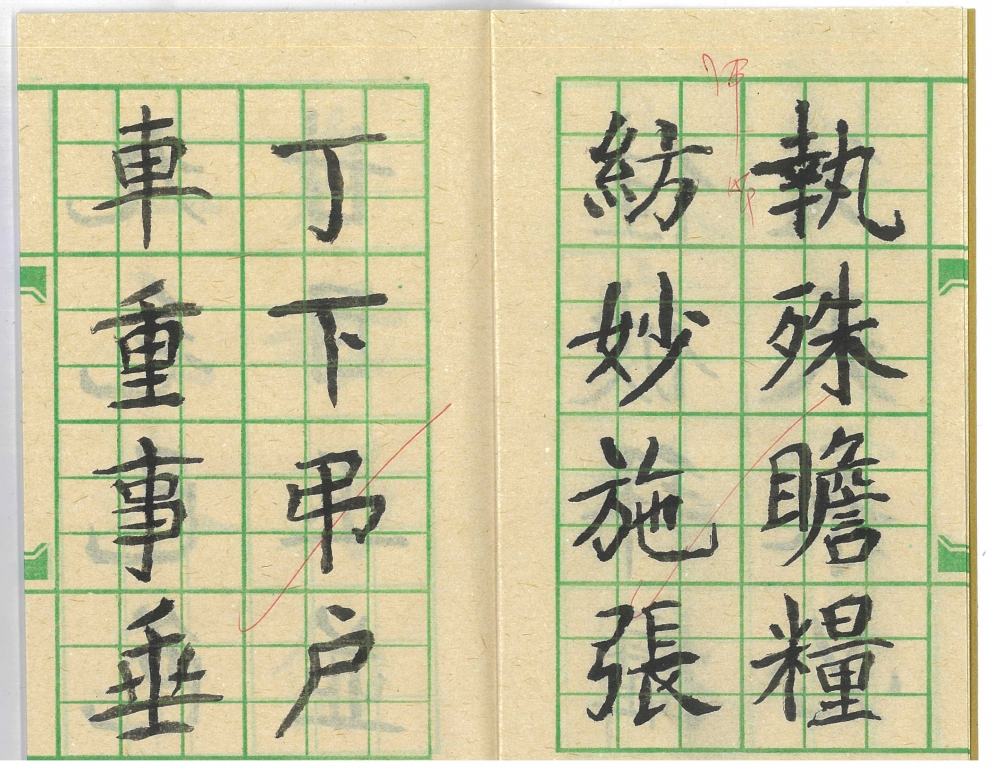 執殊瞻糧
紡妙施張
丁下弔戶
車重事垂